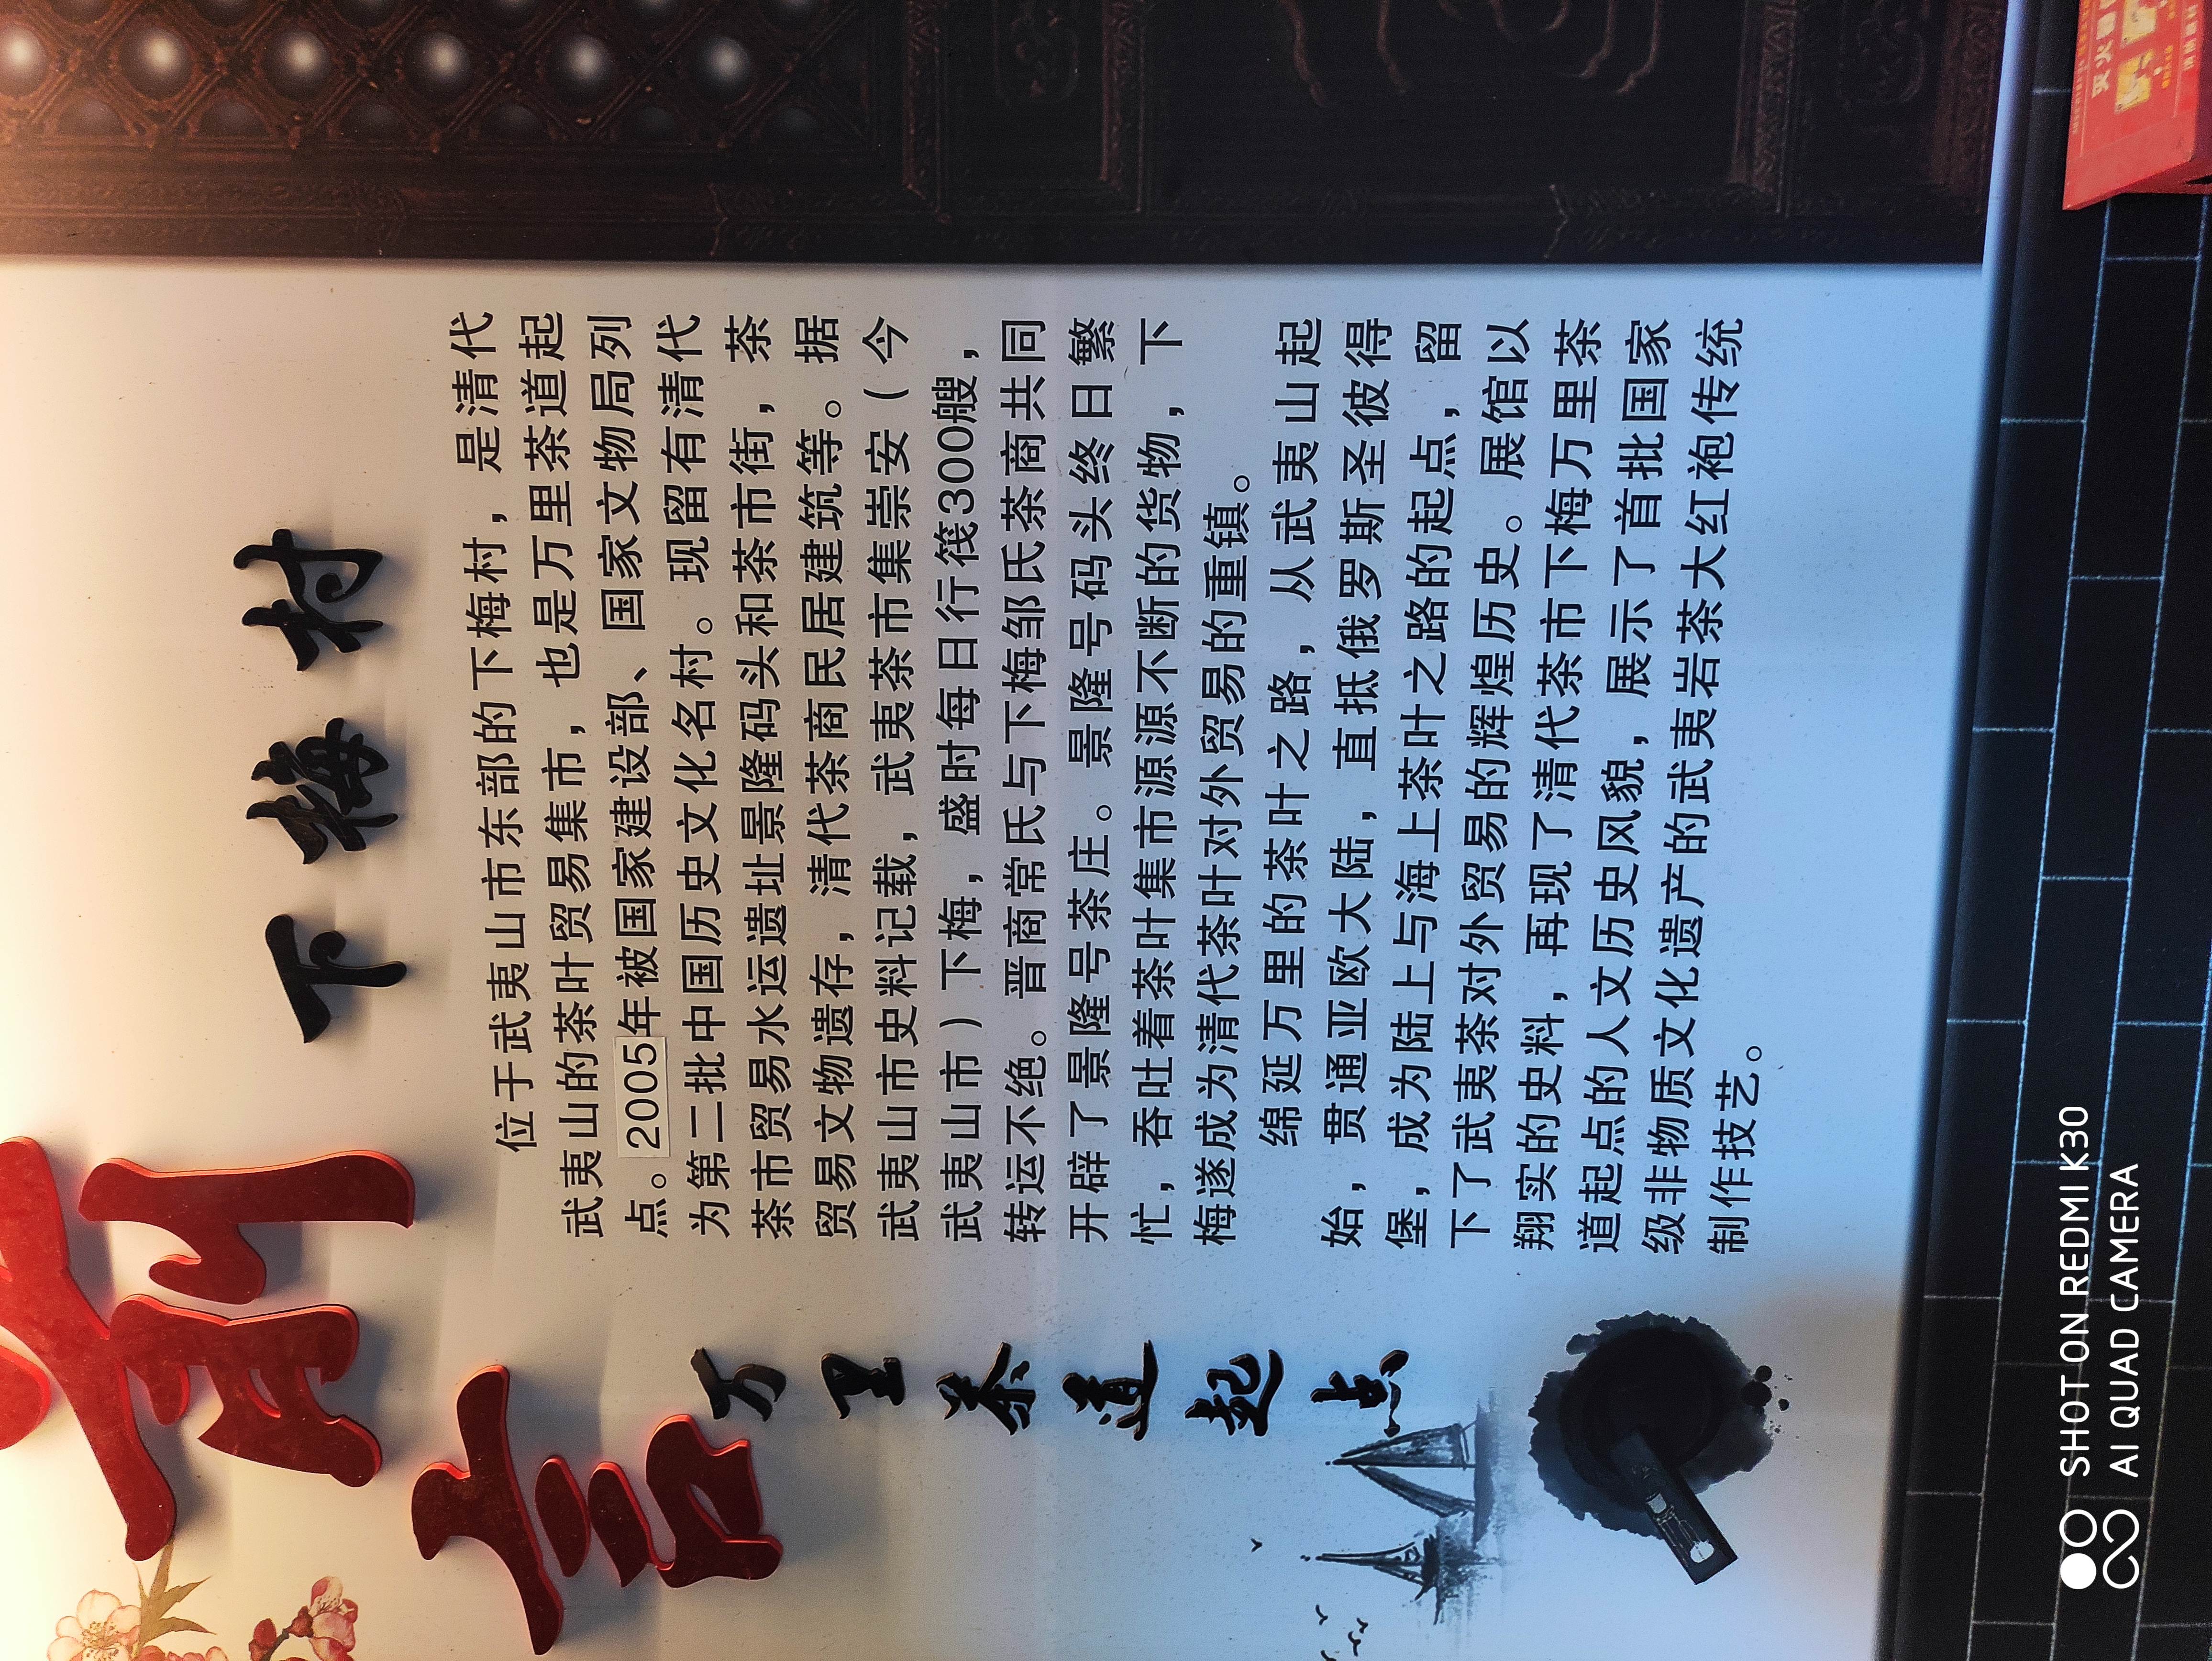 前言
下梅村
万里茶道起点
位于武夷山市东部的下梅村，是清代
武夷山的茶叶贸易集市，也是万里茶道起
点。2005年被国家建设部、国家文物局列
为第二批中国历史文化名村。现留有清代
茶市贸易水运遗址景隆码头和茶市街，茶
贸易文物遗存，清代茶商民居建筑等。据
武夷山市史料记载，武夷茶市集崇安（今
武夷山市）下梅，盛时每日行筏300艘，
转运不绝。晋商常氏与下梅邹氏茶商共同
开辟了景隆号茶庄。景隆号码头终日繁
忙，吞吐着茶叶集市源源不断的货物，下
梅遂成为清代茶叶对外贸易的重镇。
绵延万里的茶叶之路，从武夷山起
始，贯通亚欧大陆，直抵俄罗斯圣彼得
堡，成为陆上与海上茶叶之路的起点，留
下了武夷茶对外贸易的辉煌历史。展馆以
翔实的史料，再现了清代茶市下梅万里茶
道起点的人文历史风貌，展示了首批国家
级非物质文化遗产的武夷岩茶大红袍传统
制作技艺。
SHOT ON REDMI K30
AI QUAD CAMERA